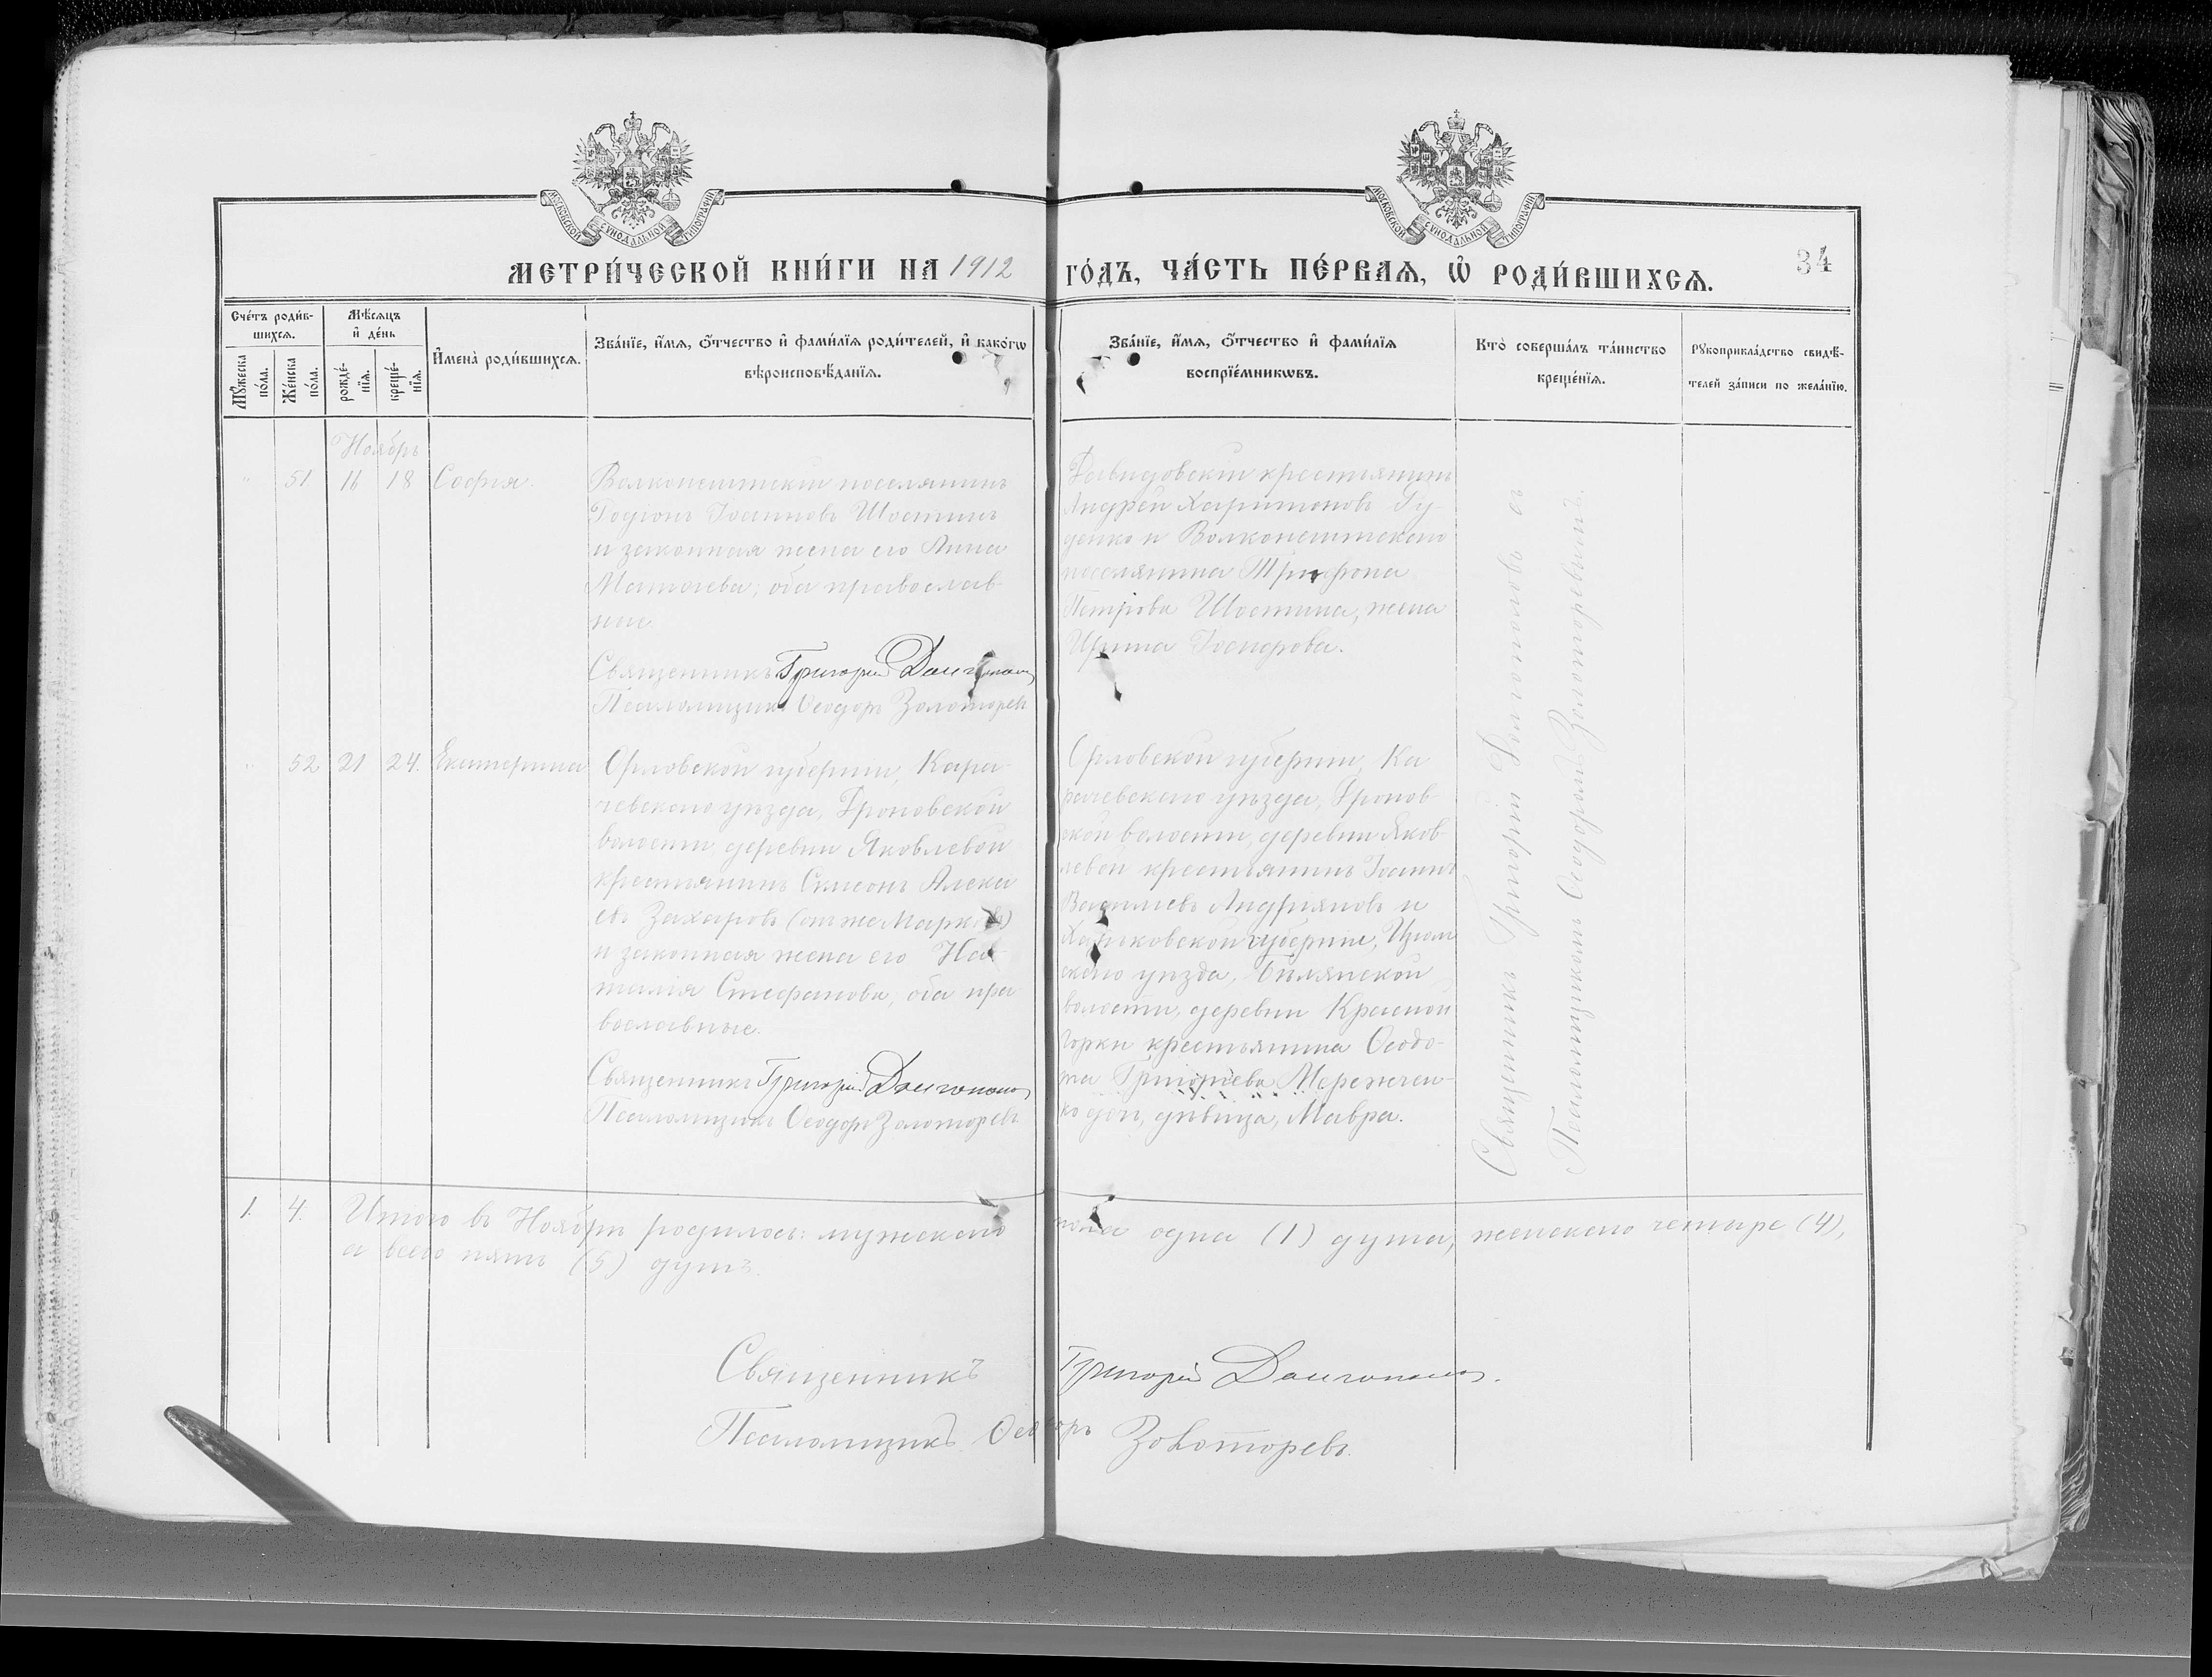 МОСКОВСКОЙ СѴНОДАЛЬНОЙ ТИПОГРАФІИ
МОСКОВСКОЙ СѴНОДАЛЬНОЙ ТИПОГРАФІИ
МЕТРИ́ЧЕСКОЙ КНИ́ГИ НА 1912 ГО́ДЪ, ЧА́СТЬ ПЕ́РВАѦ, Ѡ҆ РОДИ́ВШИХСѦ.
34
Сче́тъ роди́в-
шихсѧ.
Мꙋжеска по́ла.
Же́нска по́ла.
Мѣ́сѧцъ
и҆ де́нь
рожде́-
нїѧ.
креще́-
нїѧ.
И҆мена̀ роди́вшихсѧ.
Зва́нїе, и҆́мѧ, ѻ҆́тчество и҆ фами́лїѧ роди́телей, и҆ како́гѡ
вѣроисповѣ́данїѧ.
Зва́нїе, и҆́мѧ, ѻ҆́тчество и҆ фами́лїѧ
воспрїе́мникѡвъ.
Кто̀ соверша́лъ та́инство
креще́нїѧ.
Рꙋкоприкла́дство свидѣ́-
телей за́писи по жела́нїю.
Ноябрь
" 51 16 18 София.
Волконештскій поселянинъ
Родіонъ Іоанновъ Шостинъ
и законная жена его Анна
Матѳіева; оба православ-
ные
Священникъ Григорій Долгополов
Псаломщикъ Ѳеодоръ Золоторевъ
Давидовскій крестьянинъ
Андрей Харитоновъ Гу-
денко и Волконештскаго
поселянина Трифона
Петрова Шостина, жена
Ирина
" 52 21 24. Екатерина
Орловской губерніи, Кара-
чевскаго уѣзда, Дроновской
волости деревни Яковлевой
крестьянинъ Симеонъ Алексѣ
евъ Захаровъ (онъ же Марковъ)
и законная жена его На-
талія Стефанова, оба пра
вославные.
Священникъ Григорій Долгополов
Псаломщикъ Ѳеодоръ Золоторевъ
Орловской губерніи, Ка
рачевскаго уѣзда, Дронов
ской волости, деревни Яков-
левой крестьянинъ Іоаннъ
Василіевъ Андріяновъ и
Харьковской губерніи, Изюм
скаго уѣзда, Бѣлянской
волости, деревни Красной
Горки крестьянина Ѳеодо-
та Григоріева Мережчен-
ко дочь, дѣвица, Мавра.
Священникъ Григорій Долгополовъ съ
Псаломщикомъ Ѳеодоромъ Золоторевымъ.
1. 4. Итого въ Ноябрѣ родилось: мужескаго пола одна (1) душа, женскаго четыре (4),
а всего пять (5) душъ.
Священникъ Григорій Долгополов.
Псаломщикъ Ѳеодоръ Золоторевъ.